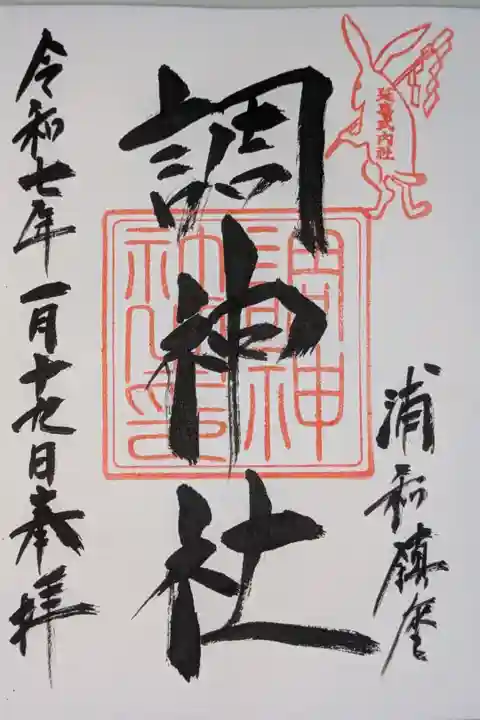 延喜式内社
浦和鎮座
調神社
調神社印
令和七年一月十九日奉拝